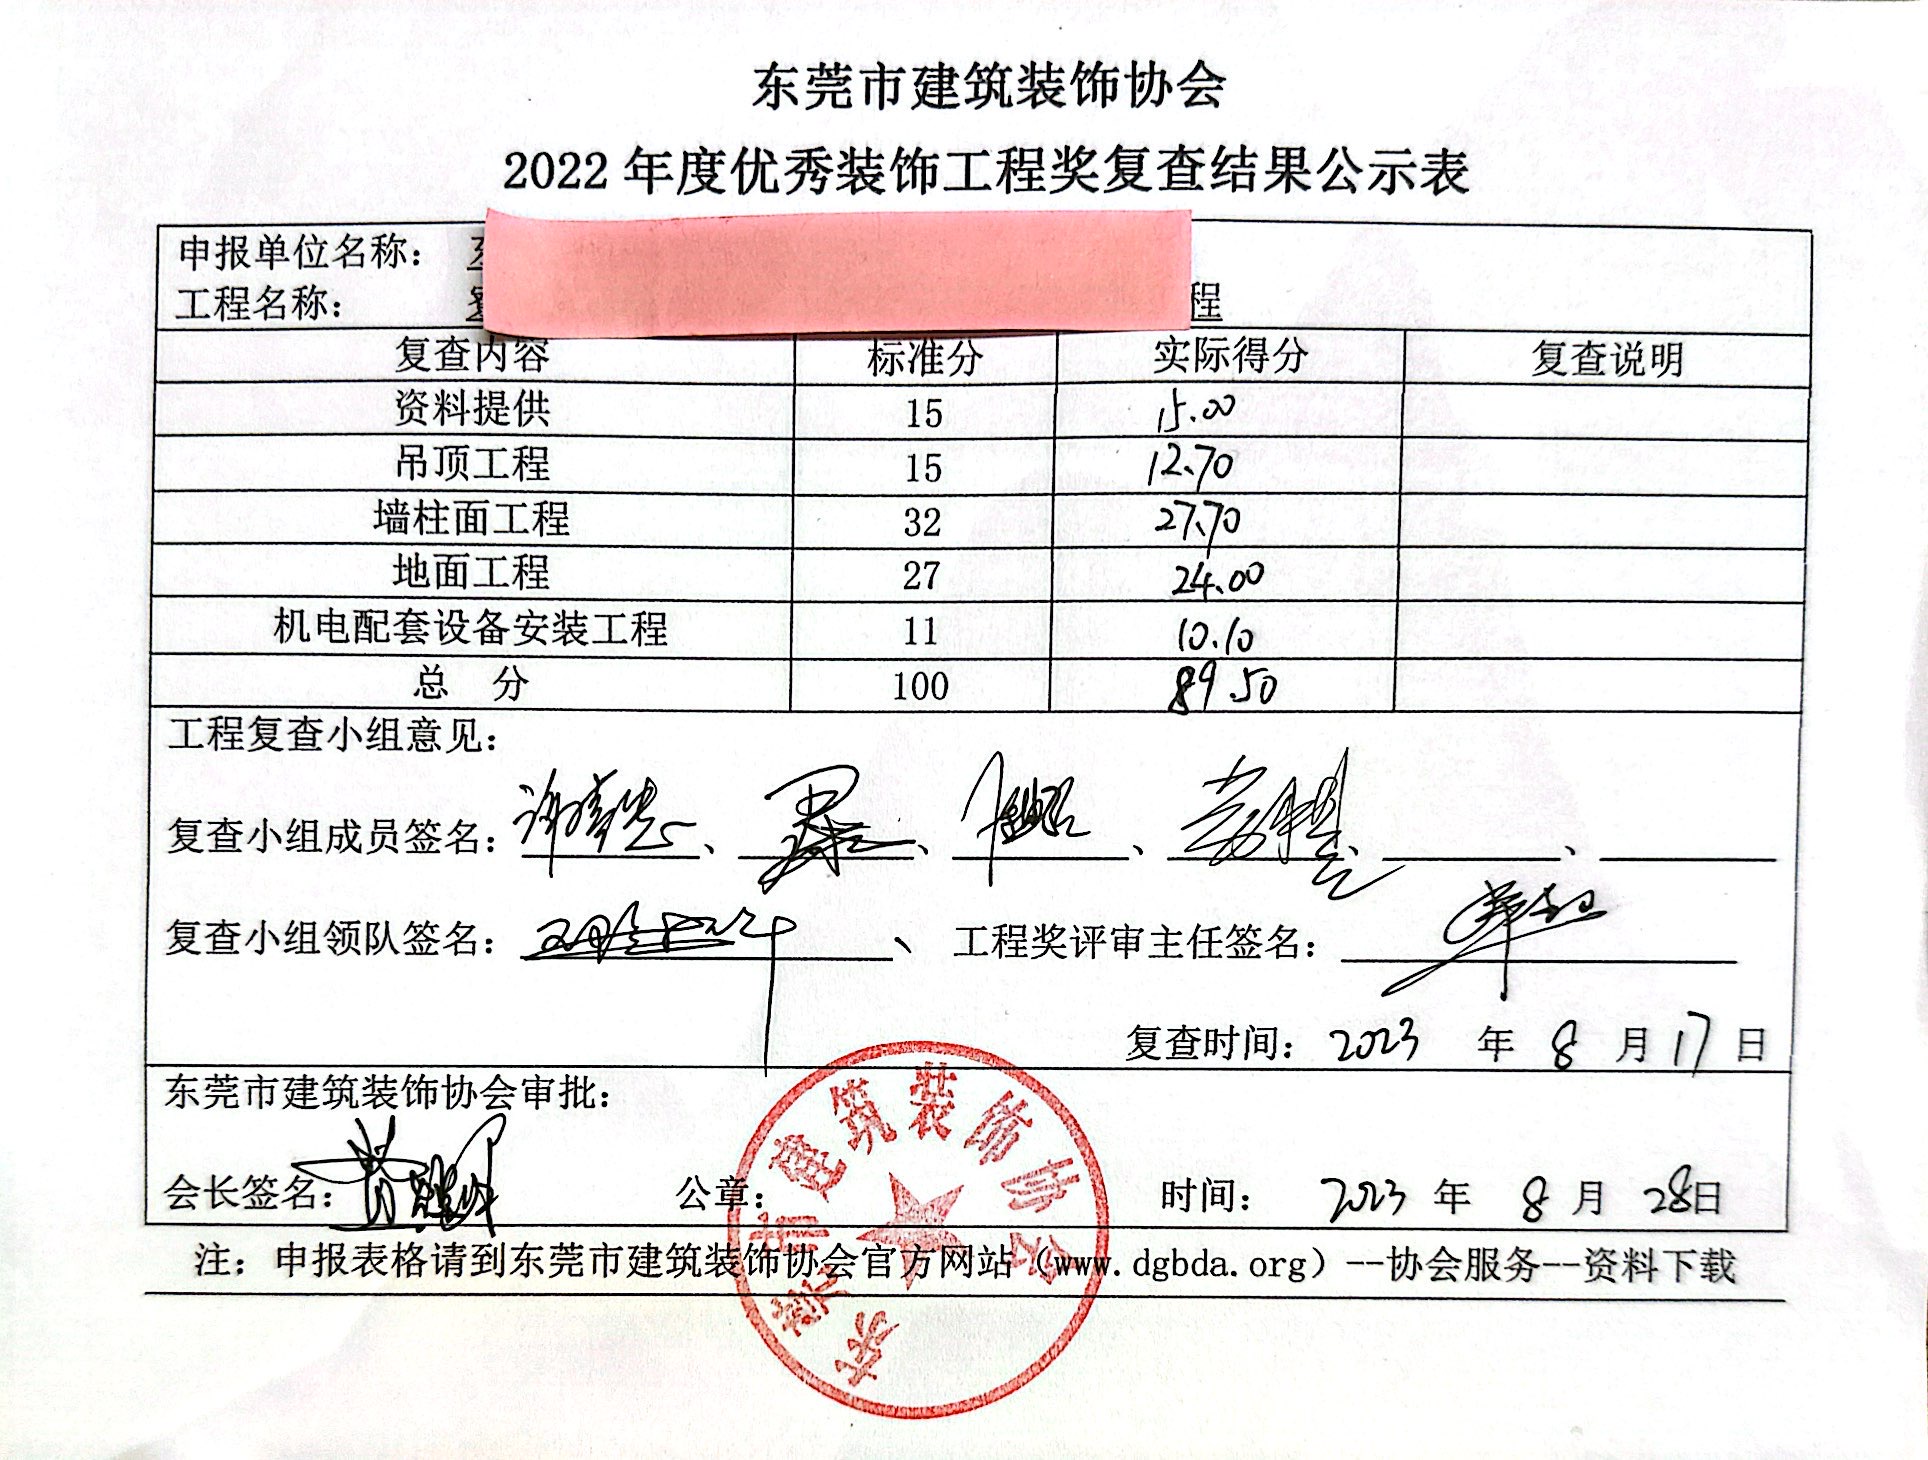 东莞市建筑装饰协会
2022 年度优秀装饰工程奖复查结果公示表
申报单位名称：
工程名称： 程
复查内容 标准分 实际得分 复查说明
资料提供 15 15.00
吊顶工程 15 12.70
墙柱面工程 32 27.70
地面工程 27 24.00
机电配套设备安装工程 11 10.10
总 分 100 89.50
工程复查小组意见：
复查小组成员签名： 、 、 、 、 、
复查小组领队签名： 、 工程奖评审主任签名：
复查时间： 2023 年 8 月 17 日
东莞市建筑装饰协会审批：
会长签名： 公章： 时间： 2023 年 8 月 28 日
东莞市建筑装饰协会
注：申报表格请到东莞市建筑装饰协会官方网站（www.dgbda.org）--协会服务--资料下载